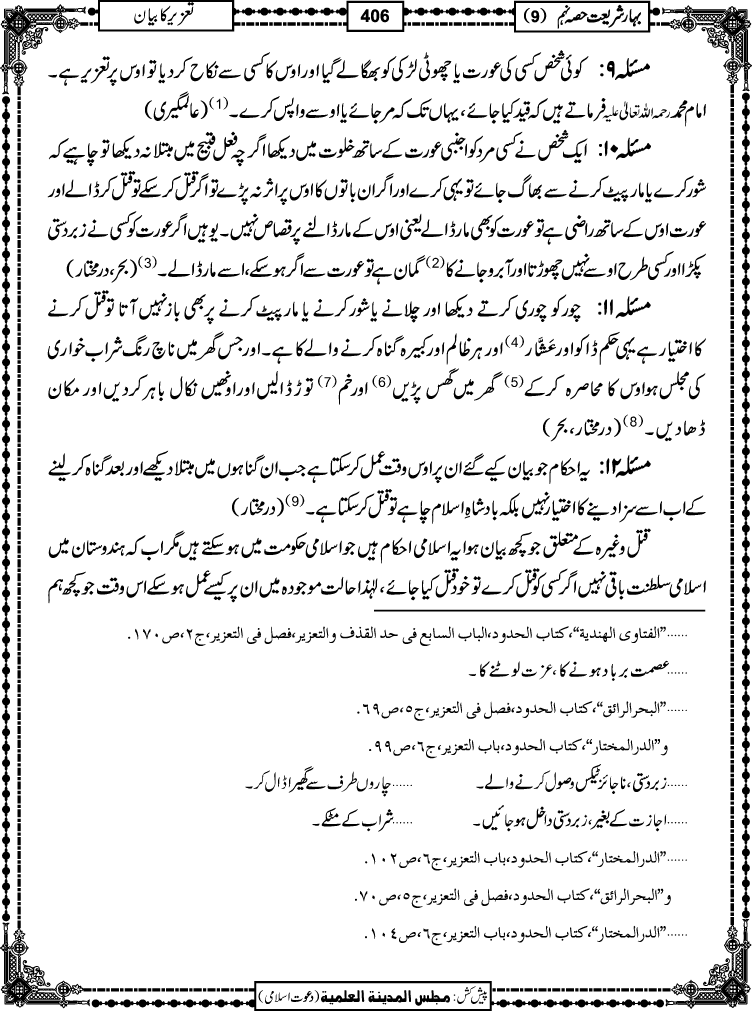 بہارِشریعت حصہ نہم (9)
406
تعزیر کا بیان
مسئلہ ۹: کوئی شخص کسی کی عورت یا چھوٹی لڑکی کو بھگا لے گیا اور اوس کا کسی سے نکاح کر دیا تو اوس پر تعزیر ہے۔
امام محمد رحمہ اللہ تعالیٰ علیہ فرماتے ہیں کہ قید کیا جائے، یہاں تک کہ مر جائے یا اوسے واپس کرے۔(1) (عالمگیری)
مسئلہ ۱۰: ایک شخص نے کسی مرد کو اجنبی عورت کے ساتھ خلوت میں دیکھا اگرچہ فعل قبیح میں مبتلا نہ دیکھا تو چاہیے کہ
شور کرے یا مار پیٹ کرنے سے بھاگ جائے تو یہی کرے اور اگر ان باتوں کا اوس پر اثر نہ پڑے تو اگر قتل کر سکے تو قتل کر ڈالے اور
عورت اوس کے ساتھ راضی ہے تو عورت کو بھی مار ڈالے یعنی اوس کے مار ڈالنے پر قصاص نہیں۔ یوہیں اگر عورت کو کسی نے زبردستی
پکڑا اور کسی طرح اوسے نہیں چھوڑتا اور آبرو جانے کا(2) گمان ہے تو عورت سے اگر ہو سکے، اسے مار ڈالے۔(3) (بحر، درمختار)
مسئلہ ۱۱: چور کو چوری کرتے دیکھا اور چلانے یا شور کرنے یا مار پیٹ کرنے پر بھی باز نہیں آتا تو قتل کرنے
کا اختیار ہے یہی حکم ڈاکو اور عَشَّار(4) اور ہر ظالم اور کبیرہ گناہ کرنے والے کا ہے۔ اور جس گھر میں ناچ رنگ شراب خواری
کی مجلس ہو اوس کا محاصرہ کرکے(5) گھر میں گھس پڑیں(6) اور خم(7) توڑ ڈالیں اور اونھیں نکال باہر کر دیں اور مکان
ڈھا دیں۔(8) (درمختار، بحر)
مسئلہ ۱۲: یہ احکام جو بیان کیے گئے ان پر اوس وقت عمل کر سکتا ہے جب ان گناہوں میں مبتلا دیکھے اور بعد گناہ کر لینے
کے اب اسے سزا دینے کا اختیار نہیں بلکہ بادشاہِ اسلام چاہے تو قتل کر سکتا ہے۔(9) (درمختار)
قتل وغیرہ کے متعلق جو کچھ بیان ہوا یہ اسلامی احکام ہیں جو اسلامی حکومت میں ہو سکتے ہیں مگر اب کہ ہندوستان میں
اسلامی سلطنت باقی نہیں اگر کسی کو قتل کرے تو خود قتل کیا جائے، لہٰذا حالت موجودہ میں ان پر کیسے عمل ہو سکے اس وقت جو کچھ ہم
......”الفتاوی الھندیة“، کتاب الحدود، الباب السابع فی حد القذف والتعزیر، فصل فی التعزیر، ج٢، ص١٧٠.
......عصمت برباد ہونے کا، عزت لوٹنے کا۔
......”البحرالرائق“، کتاب الحدود، فصل فی التعزیر، ج٥، ص٦٩.
و”الدرالمختار“، کتاب الحدود، باب التعزیر، ج٦، ص٩٩.
......زبردستی، ناجائز ٹیکس وصول کرنے والے۔ ......چاروں طرف سے گھیرا ڈال کر۔
......اجازت کے بغیر، زبردستی داخل ہو جائیں۔ ......شراب کے مٹکے۔
......”الدرالمختار“، کتاب الحدود، باب التعزیر، ج٦، ص١٠٢.
و”البحرالرائق“، کتاب الحدود، فصل فی التعزیر، ج٥، ص٧٠.
......”الدرالمختار“، کتاب الحدود، باب التعزیر، ج٦، ص١٠٤.
پیش کش: مجلس المدینة العلمیة (دعوت اسلامی)